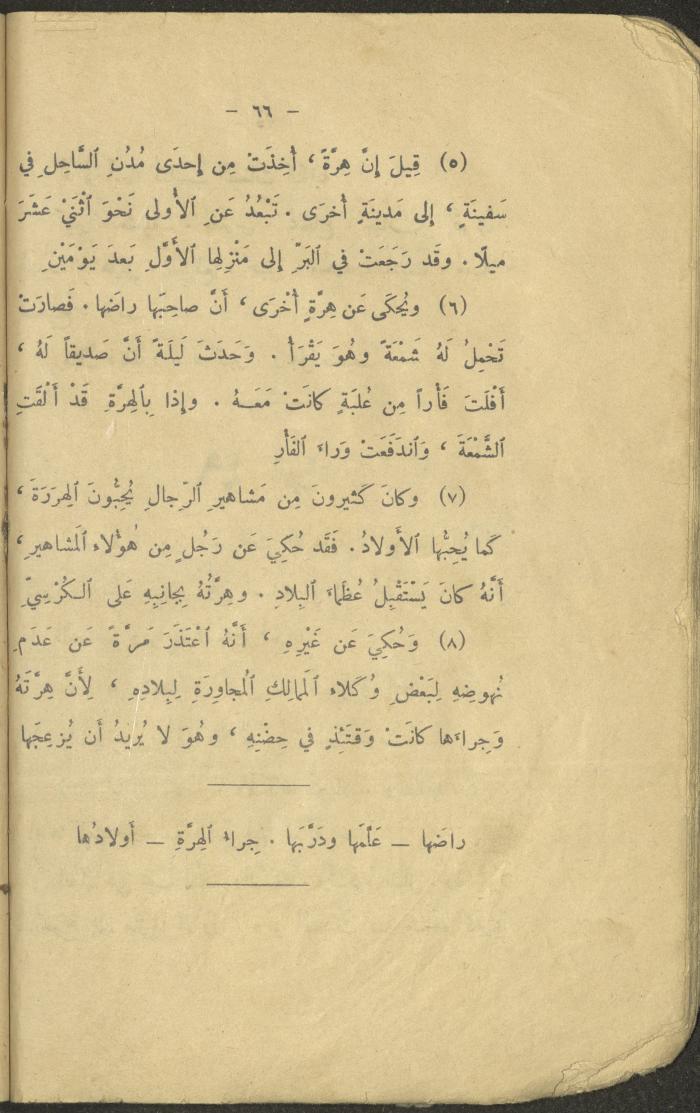 – ٦٦ –
(٥) قِيلَ إِنَّ هِرَّةً ، أُخِذَتْ مِن إِحدَى مُدُنِ ٱلسَّاحِلِ في
سَفينَةٍ ، إِلى مَدينَةٍ أُخرَى . تَبْعُدُ عَنِ ٱلأُولى نَحْوَ ٱثْنَيْ عَشَرَ
ميلًا . وقَد رَجَعَتْ في ٱلبَرِّ إِلى مَنْزِلِها ٱلأَوَّلِ بَعدَ يَوْمَيْنِ
(٦) ويُحكَى عَن هِرَّةٍ أُخْرَى ، أَنَّ صاحِبَها راضَها . فَصارَتْ
تَحْمِلُ لَهُ شَمْعَةً وهُوَ يَقْرَأُ . وَحَدَثَ لَيلَةً أَنَّ صَديقاً لَهُ ،
أَفْلَتَ فَأْراً مِن عُلبَةٍ كانَتْ مَعَـهُ . وإِذا بِٱلهِرَّةِ قَدْ أَلْقَتِ
ٱلشَّمْعَةَ ، وَٱندَفَعَتْ وَراءَ ٱلفَأْرِ
(٧) وكانَ كَثيرونَ مِن مَشاهيرِ ٱلرِّجالِ يُحِبُّونَ ٱلهِرَرَةَ ،
كَما يُحِبُّها ٱلأَولادُ . فَقَد حُكِيَ عَن رَجُلٍ مِن هٰؤُلاءِ ٱلمَشاهيرِ ،
أَنَّهُ كانَ يَسْتَقْبِلُ عُظَماءَ ٱلبِلادِ . وهِرَّتُهُ بِجانِبِهِ عَلى ٱلـكُرْسِيِّ
(٨) وَحُكِيَ عَن غَيْرِهِ ، أَنَّهُ ٱعْتَذَرَ مَرَّةً عَن عَدَمِ
نُهوضِهِ لِبَعْضِ وُكَلاءِ ٱلمَمالِكِ ٱلمُجاوِرَةِ لِبِلادِهِ ، لِأَنَّ هِرَّتَهُ
وَجِراءَها كانَتْ وَقتَئِذٍ في حِضْنِهِ ، وهُوَ لا يُريدُ أَن يُزعِجَها
راضَها – عَلَّمَها ودَرَّبَها . جِراءُ ٱلهِرَّةِ – أَولادُها